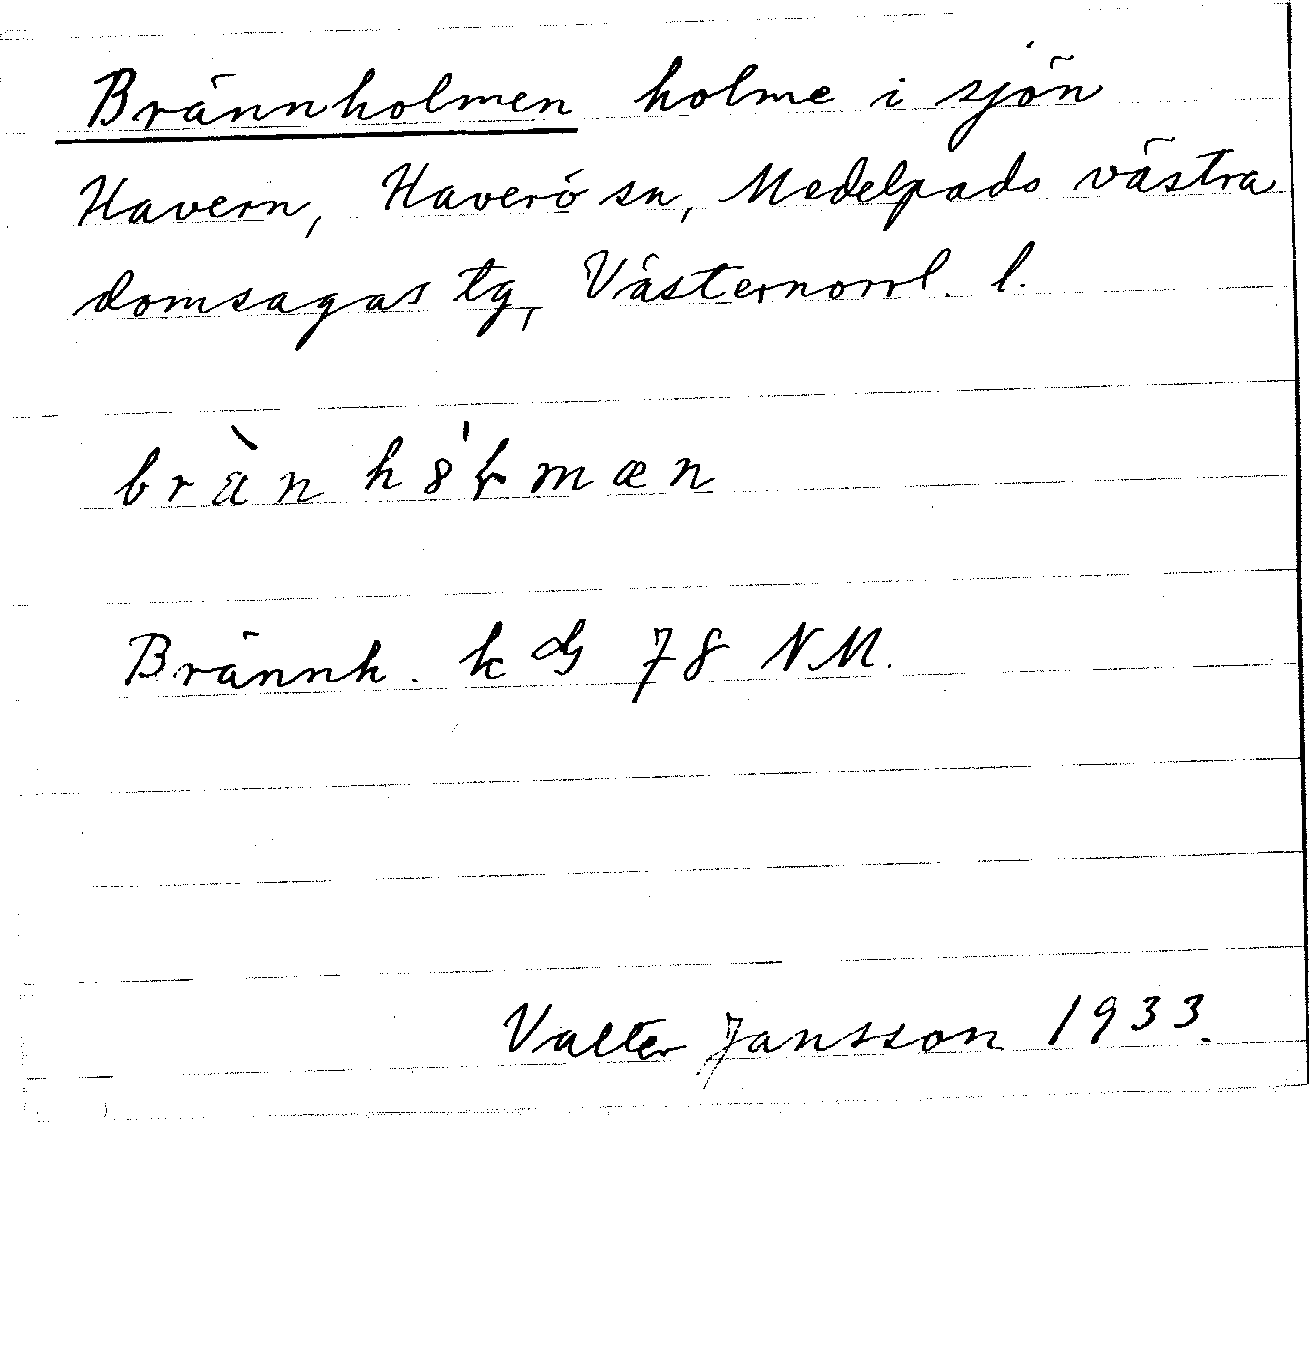 Brännholmen holme i sjön
Havern, Haverö sn, Medelpads västra
domsagas tg, Västernorrl. l.
Brännh. 78 NM.
Valter Jansson 1933.